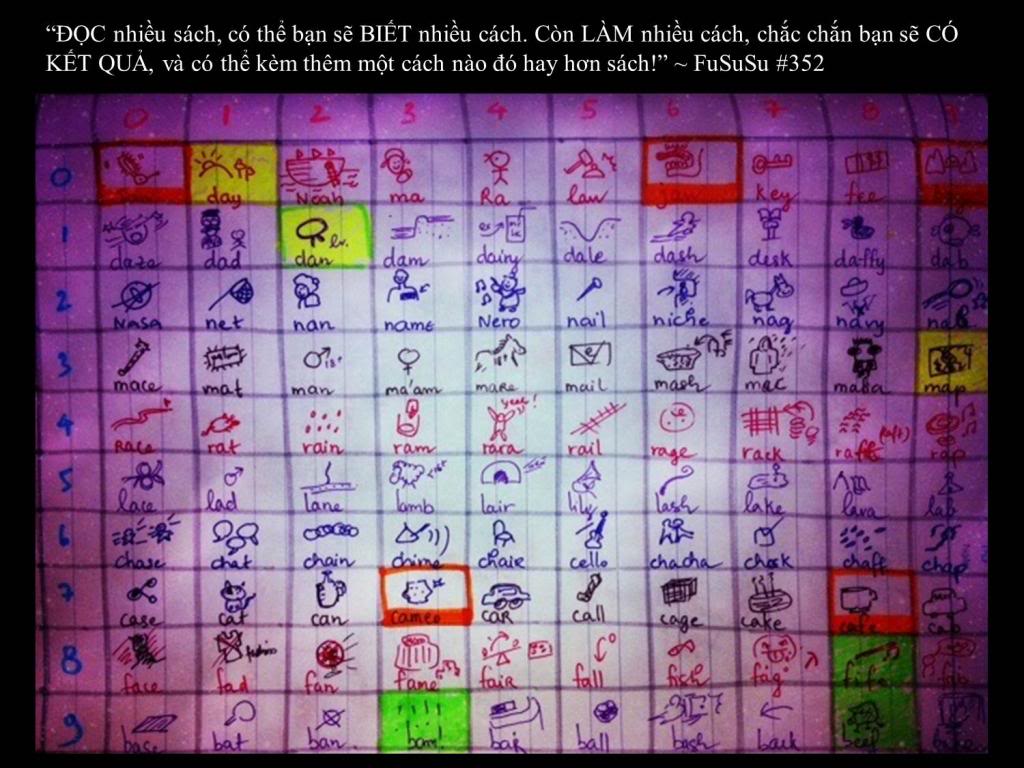 “ĐỌC nhiều sách, có thể bạn sẽ BIẾT nhiều cách. Còn LÀM nhiều cách, chắc chắn bạn sẽ CÓ
KẾT QUẢ, và có thể kèm thêm một cách nào đó hay hơn sách!” ~ FuSuSu #352
0 1 2 3 4 5 6 7 8
0 day Noah ma Ra law key fee
1 daze dad dan dam dairy dale dash desk daffy dab
2 NASA net nan name Nero nail niche nag navy
3 mace mat man ma'am mare mail mash mac map
4 Race rat rain ram rara rail rage rack rap
5 lace lad lane lamb lair lily lash lake lava lab
6 chase chat chain chime chair cello chacha chalk chaff chap
7 case cat can cameo CAR call cage cake cafe cab
8 face fad fan fame fair fall fish fag fifa
9 base bat ban bam! bar ball bash back beef